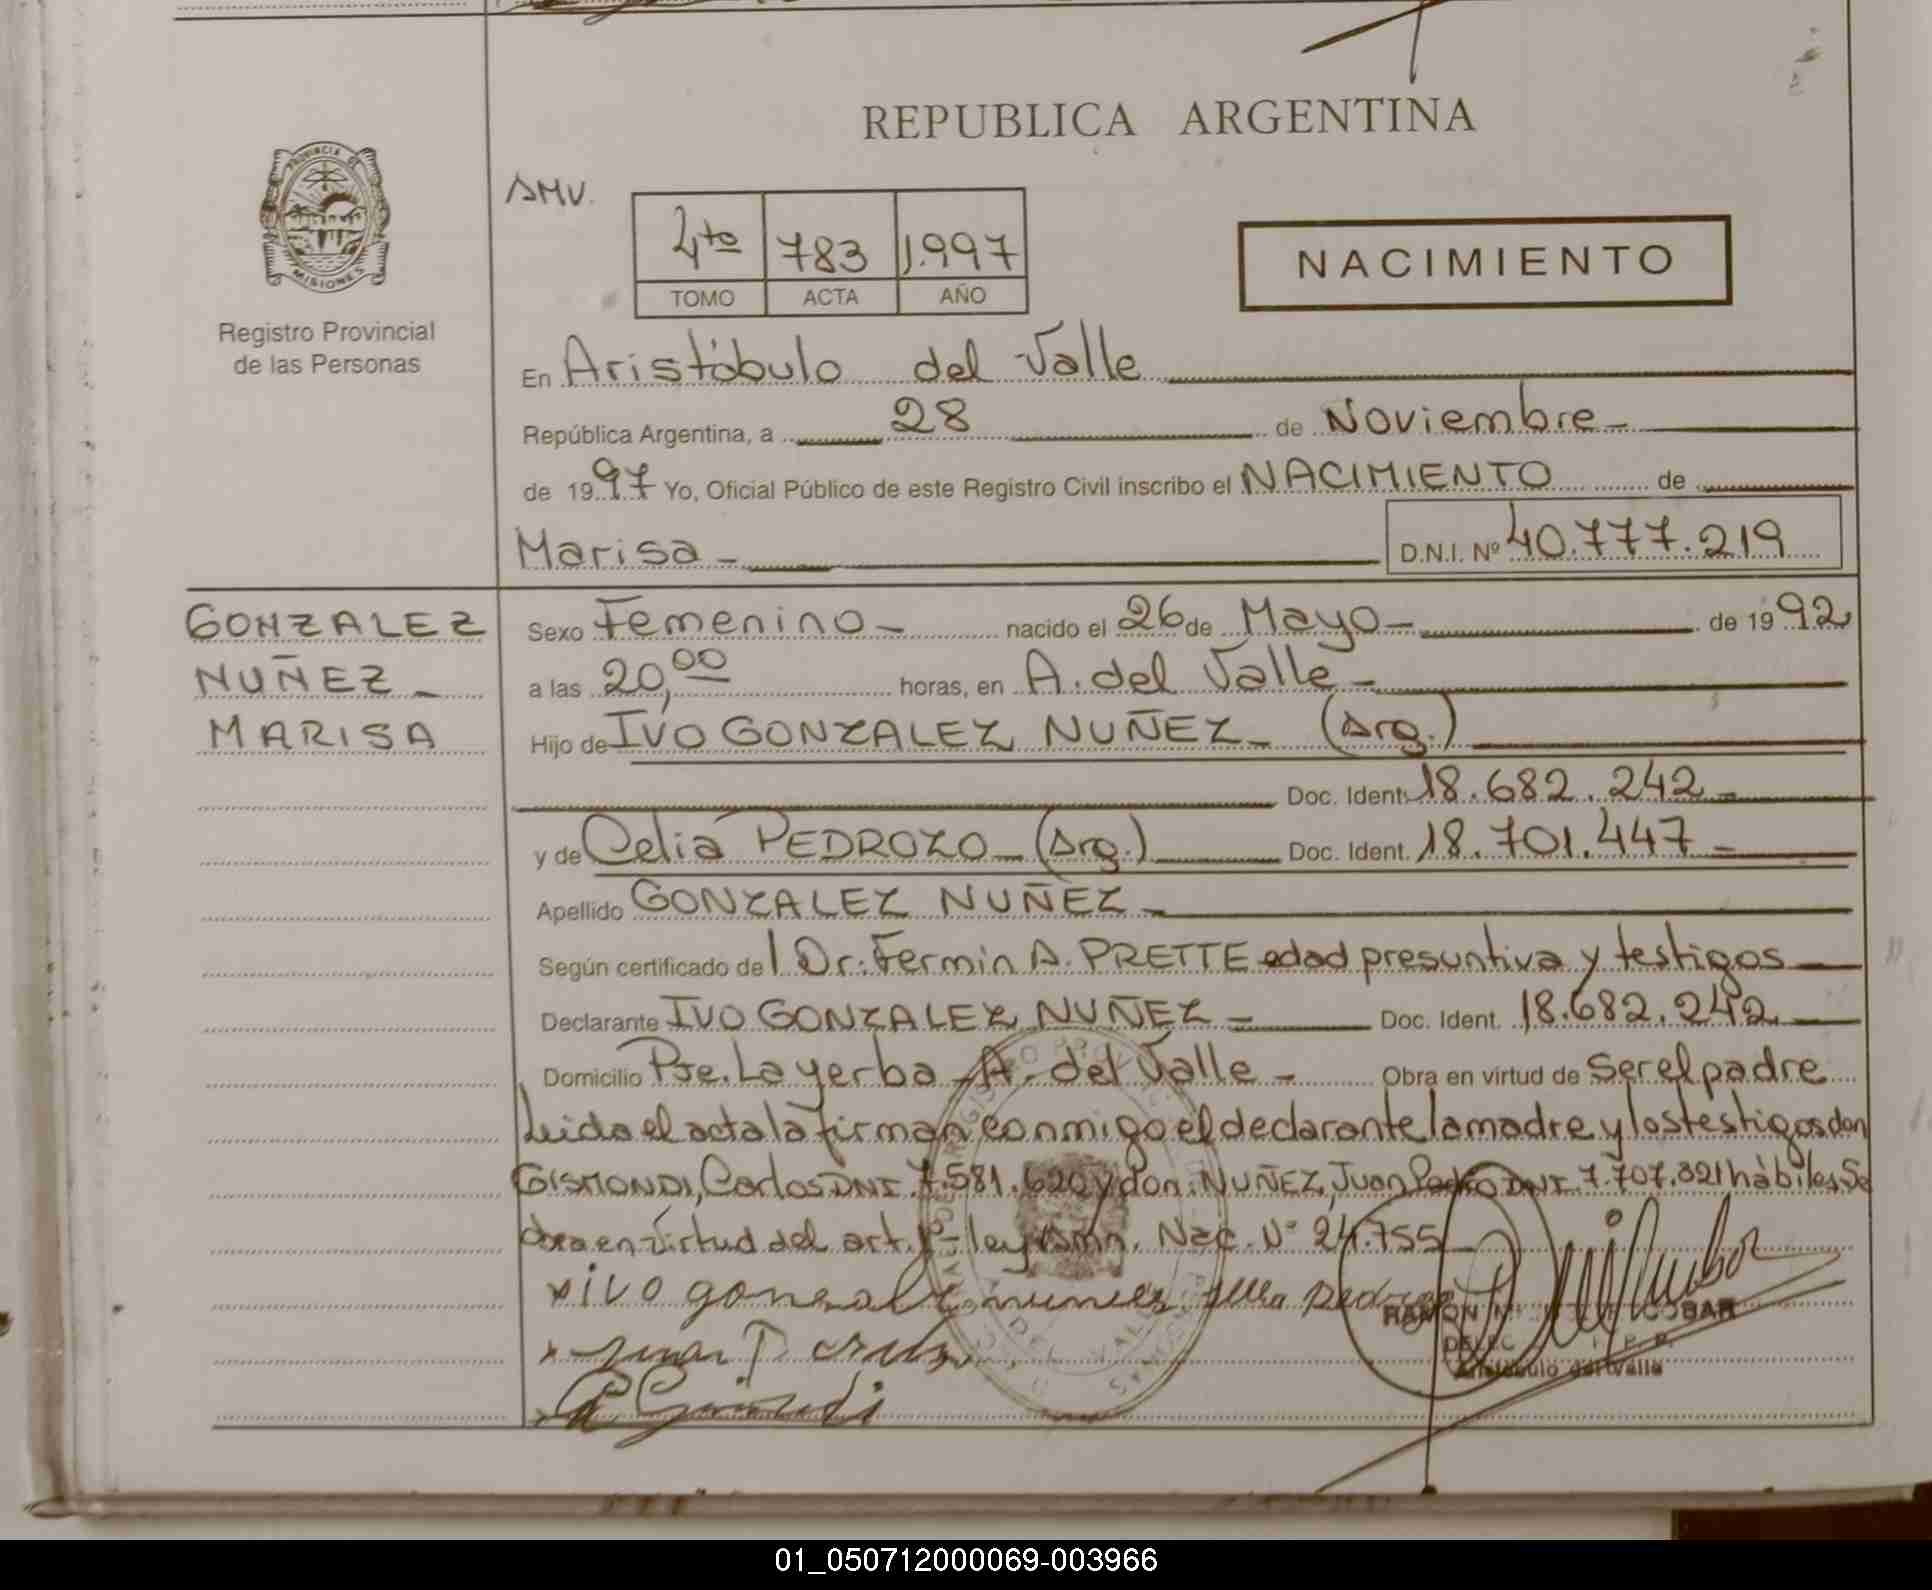 REPUBLICA ARGENTINA
PROVINCIA DE
MISIONES
Registro Provincial
de las Personas
AMV.
4to 783 1.997
TOMO ACTA AÑO
NACIMIENTO
En Aristóbulo del Valle
República Argentina, a 28 de Noviembre
de 1997 Yo, Oficial Público de este Registro Civil inscribo el NACIMIENTO de
Marisa D.N.I. Nº 40.777.219
GONZALEZ
NUÑEZ
MARISA
Sexo Femenino nacido el 26 de Mayo de 1992
a las 20,00 horas, en A. del Valle
Hijo de IVO GONZALEZ NUÑEZ (Arg.)
Doc. Ident. 18.682.242
y de Celia PEDROZO (Arg.) Doc. Ident. 18.701.447
Apellido GONZALEZ NUÑEZ
Según certificado del Dr. Fermin A. PRETTE edad presuntiva y testigos
Declarante IVO GONZALEZ NUÑEZ Doc. Ident. 18.682.242
Domicilio Pje. La yerba A. del Valle Obra en virtud de Ser el padre
Leida el acta la firman conmigo el declarante la madre y los testigos don
GISMONDI, Carlos DNI 7.581.620 y don: NUÑEZ, Juan Pedro DNI 7.707.321 hábiles Se
obra en virtud del art. 1º ley Nac. Nº 24.755
x ivo gonsale nunes pedrozo
x Juan P
x C Gismondi
RAMON ESCOBAR
Aristobulo del Valle
01_050712000069-003966